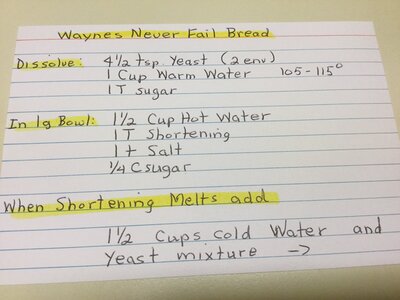 Waynes Never Fail Bread
Dissolve: 4 1/2 tsp. Yeast (2 env)
1 Cup Warm Water 105-115°
1 T sugar
In lg Bowl: 1 1/2 Cup Hot Water
1 T Shortening
1 t Salt
1/4 C sugar
When Shortening Melts add
1 1/2 Cups cold Water and
Yeast mixture →